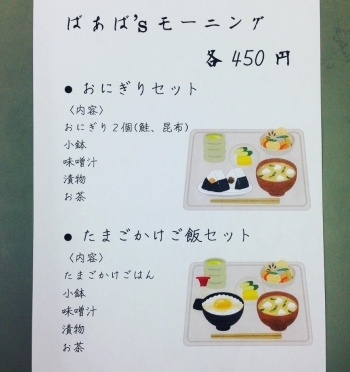 ばあば'sモーニング
各450円
● おにぎりセット
〈内容〉
おにぎり2個(鮭、昆布)
小鉢
味噌汁
漬物
お茶
● たまごかけご飯セット
〈内容〉
たまごかけごはん
小鉢
味噌汁
漬物
お茶